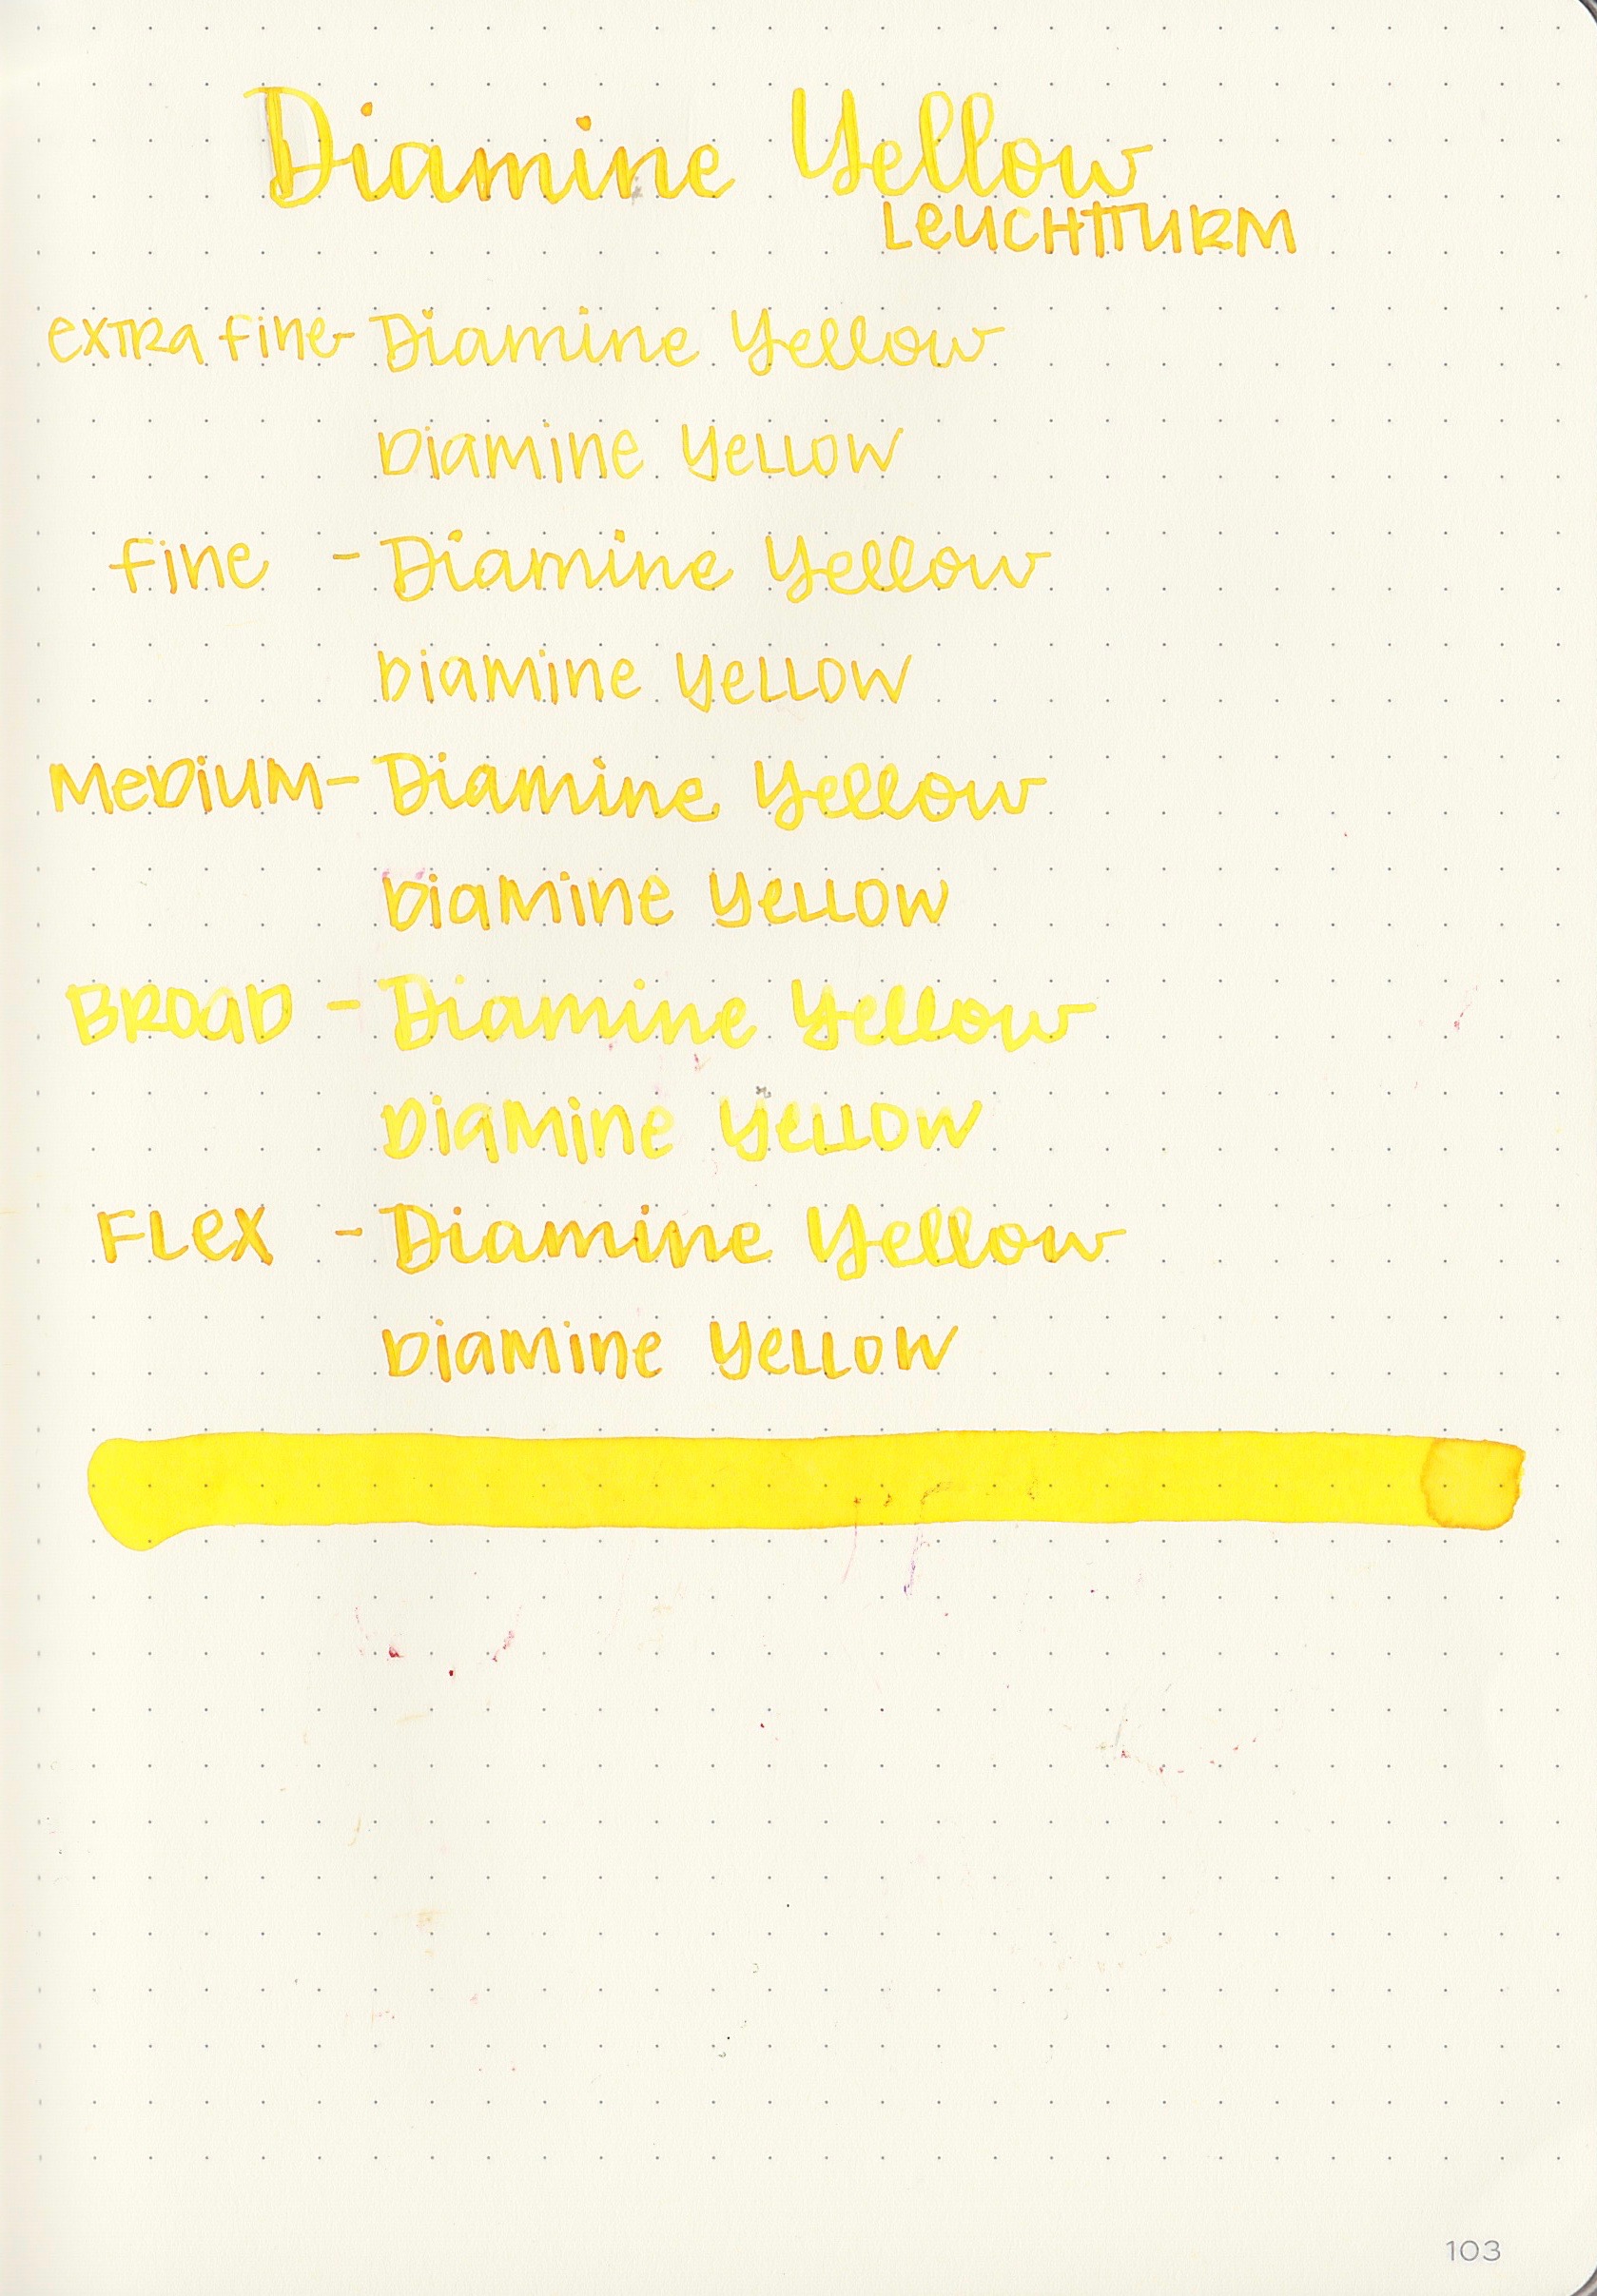 Diamine Yellow
LEUCHTTURM
extra fine - Diamine Yellow
Diamine Yellow
Fine - Diamine Yellow
Diamine Yellow
Medium - Diamine Yellow
Diamine Yellow
Broad - Diamine Yellow
Diamine Yellow
Flex - Diamine Yellow
Diamine Yellow
103